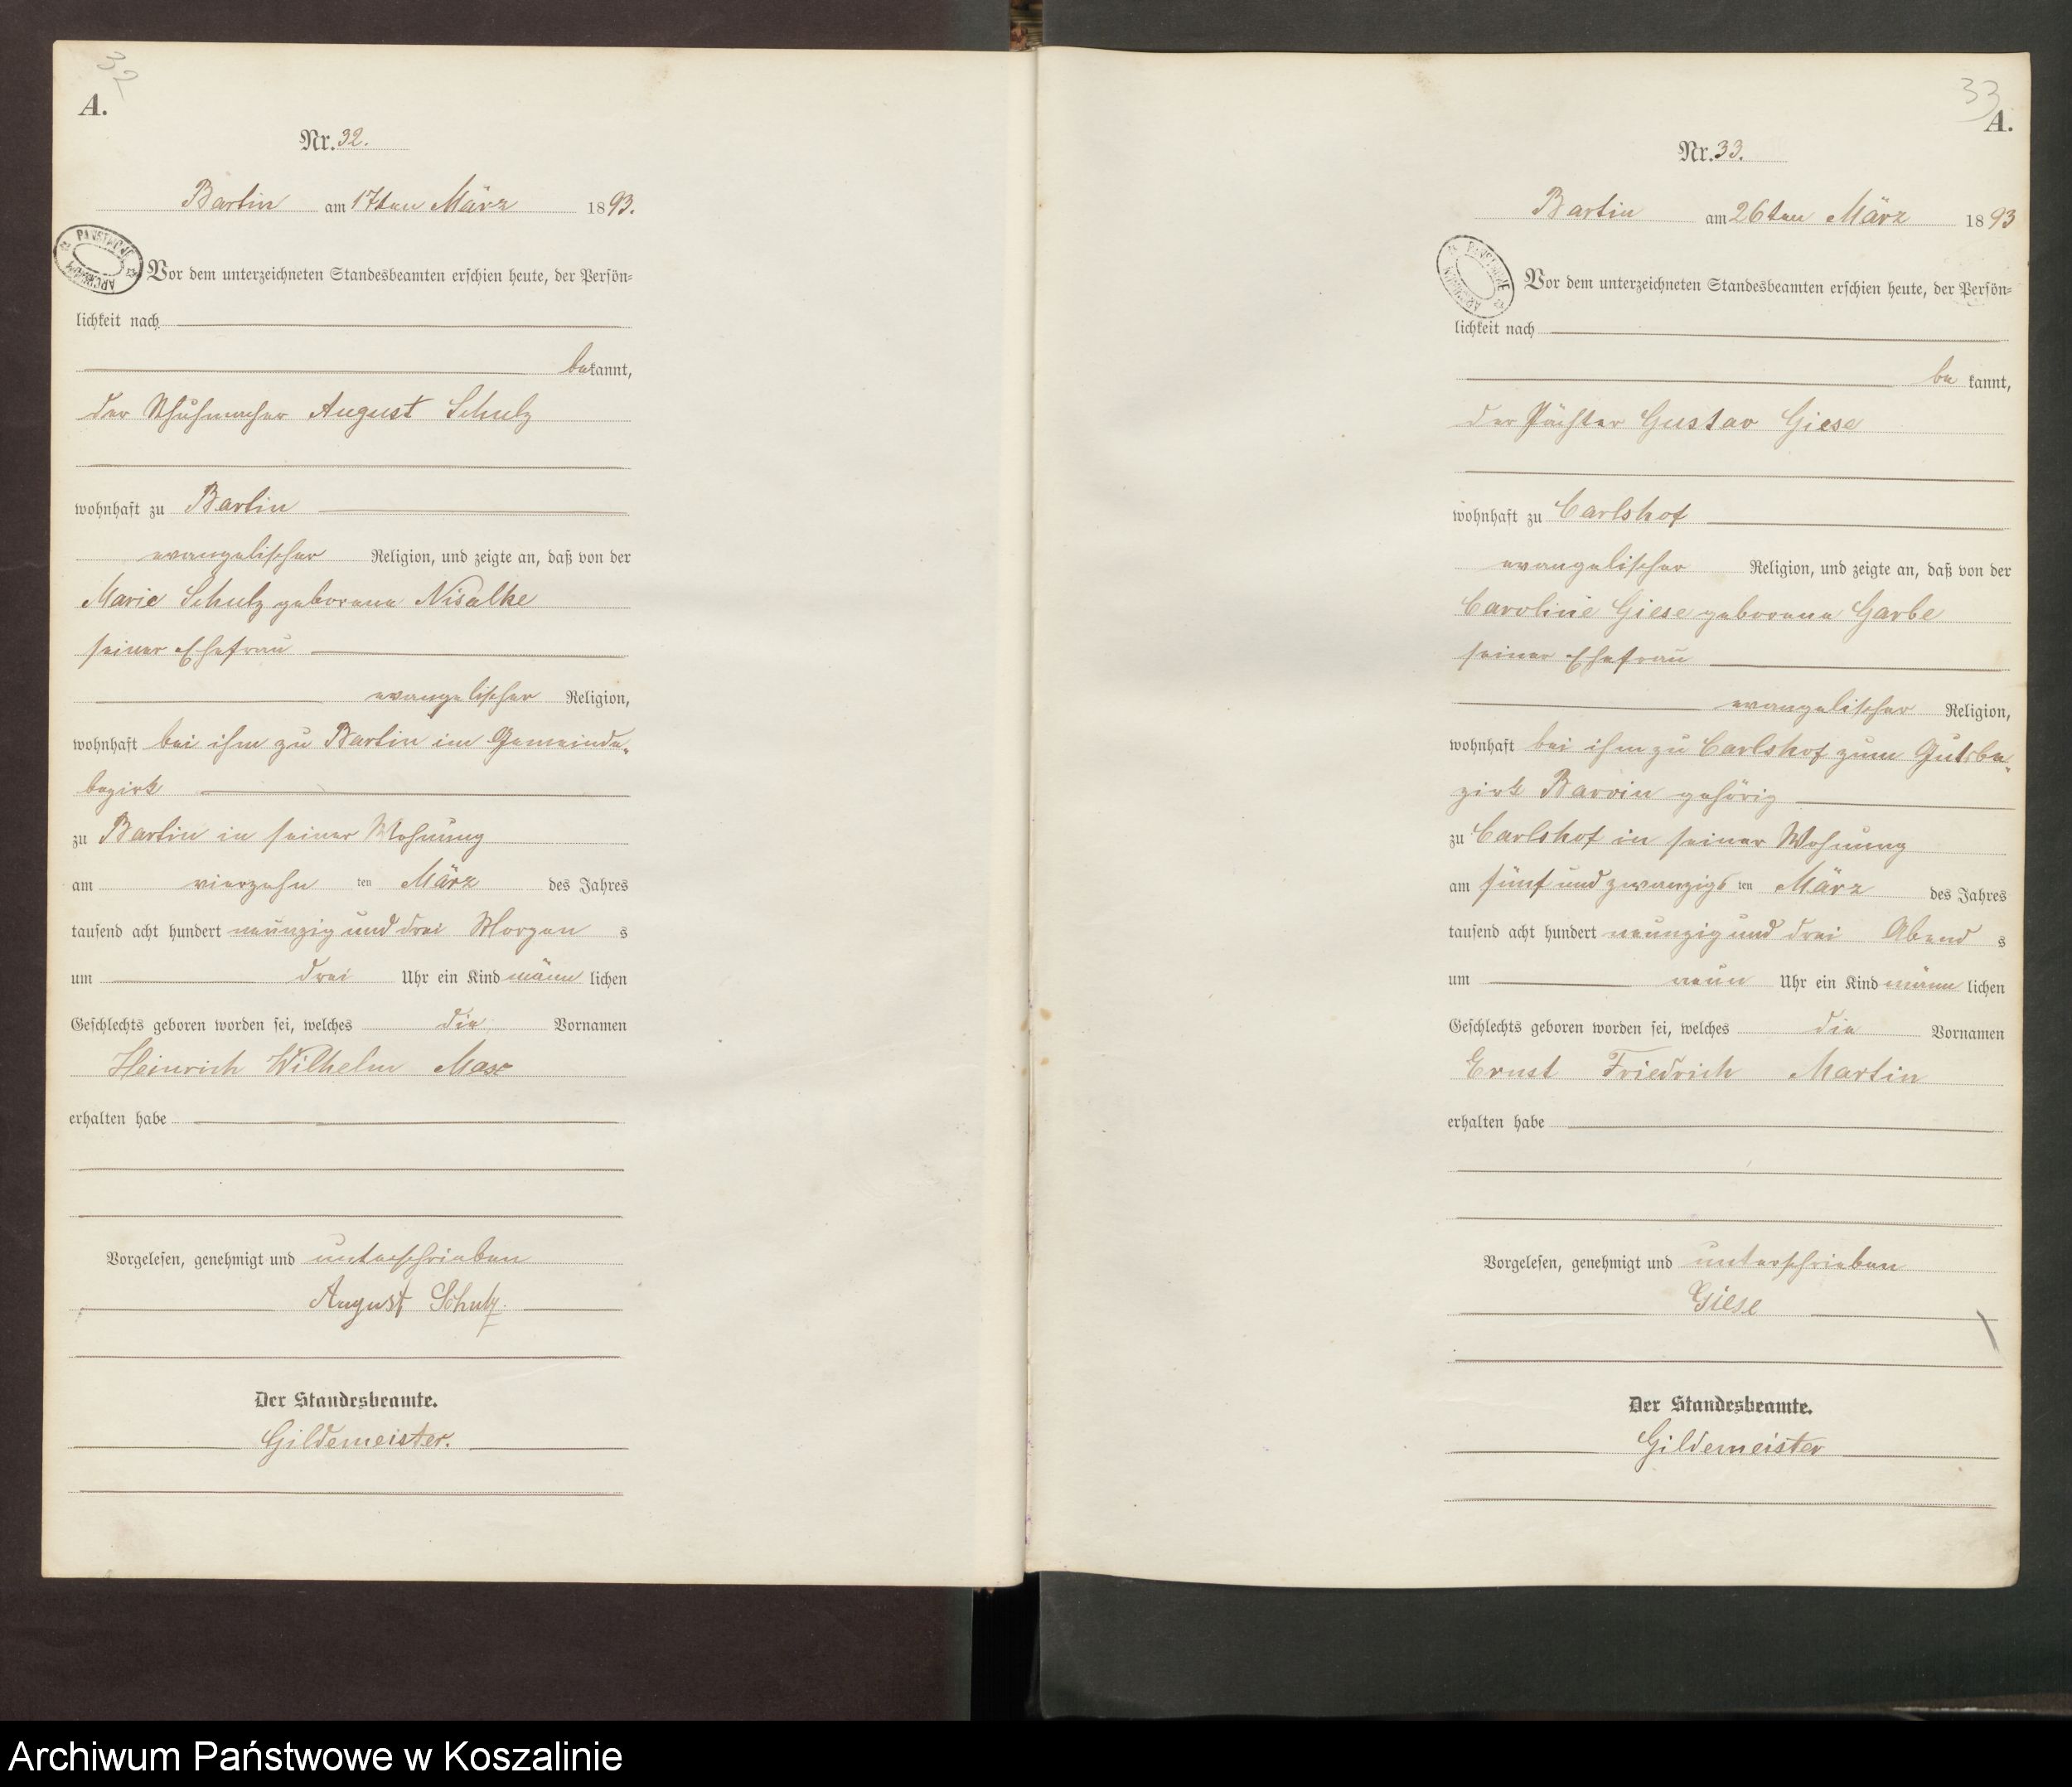 32
A.
Nr. 32.
Bartin am 17ten März 1893.
Vor dem unterzeichneten Standesbeamten erschien heute, der Persön=
lichkeit nach
bekannt,
der Schuhmacher August Schulz
wohnhaft zu Bartin
evangelischer Religion, und zeigte an, daß von der
Marie Schulz geborene Nisalke
seiner Ehefrau
evangelischer Religion,
wohnhaft bei ihm zu Bartin im Gemeinde-
bezirk
zu Bartin in seiner Wohnung
am vierzehn ten März des Jahres
tausend acht hundert neunzig und drei Morgen s
um drei Uhr ein Kind männ lichen
Geschlechts geboren worden sei, welches die Vornamen
Heinrich Wilhelm Max
erhalten habe
Vorgelesen, genehmigt und unterschrieben
August Schulz.
Der Standesbeamte.
Gildemeister.
33
A.
Nr. 33.
Bartin am 26ten März 1893
Vor dem unterzeichneten Standesbeamten erschien heute, der Persön=
lichkeit nach
be kannt,
der Pächter Gustav Giese
wohnhaft zu Carlshof
evangelischer Religion, und zeigte an, daß von der
Caroline Giese geborene Garbe
seiner Ehefrau
evangelischer Religion,
wohnhaft bei ihm zu Carlshof zum Gutsbe-
zirk Barvin gehörig
zu Carlshof in seiner Wohnung
am fünf und zwanzigs ten März des Jahres
tausend acht hundert neunzig und drei Abend s
um neun Uhr ein Kind männ lichen
Geschlechts geboren worden sei, welches die Vornamen
Ernst Friedrich Martin
erhalten habe
Vorgelesen, genehmigt und unterschrieben
Giese
Der Standesbeamte.
Gildemeister
Archiwum Państwowe w Koszalinie